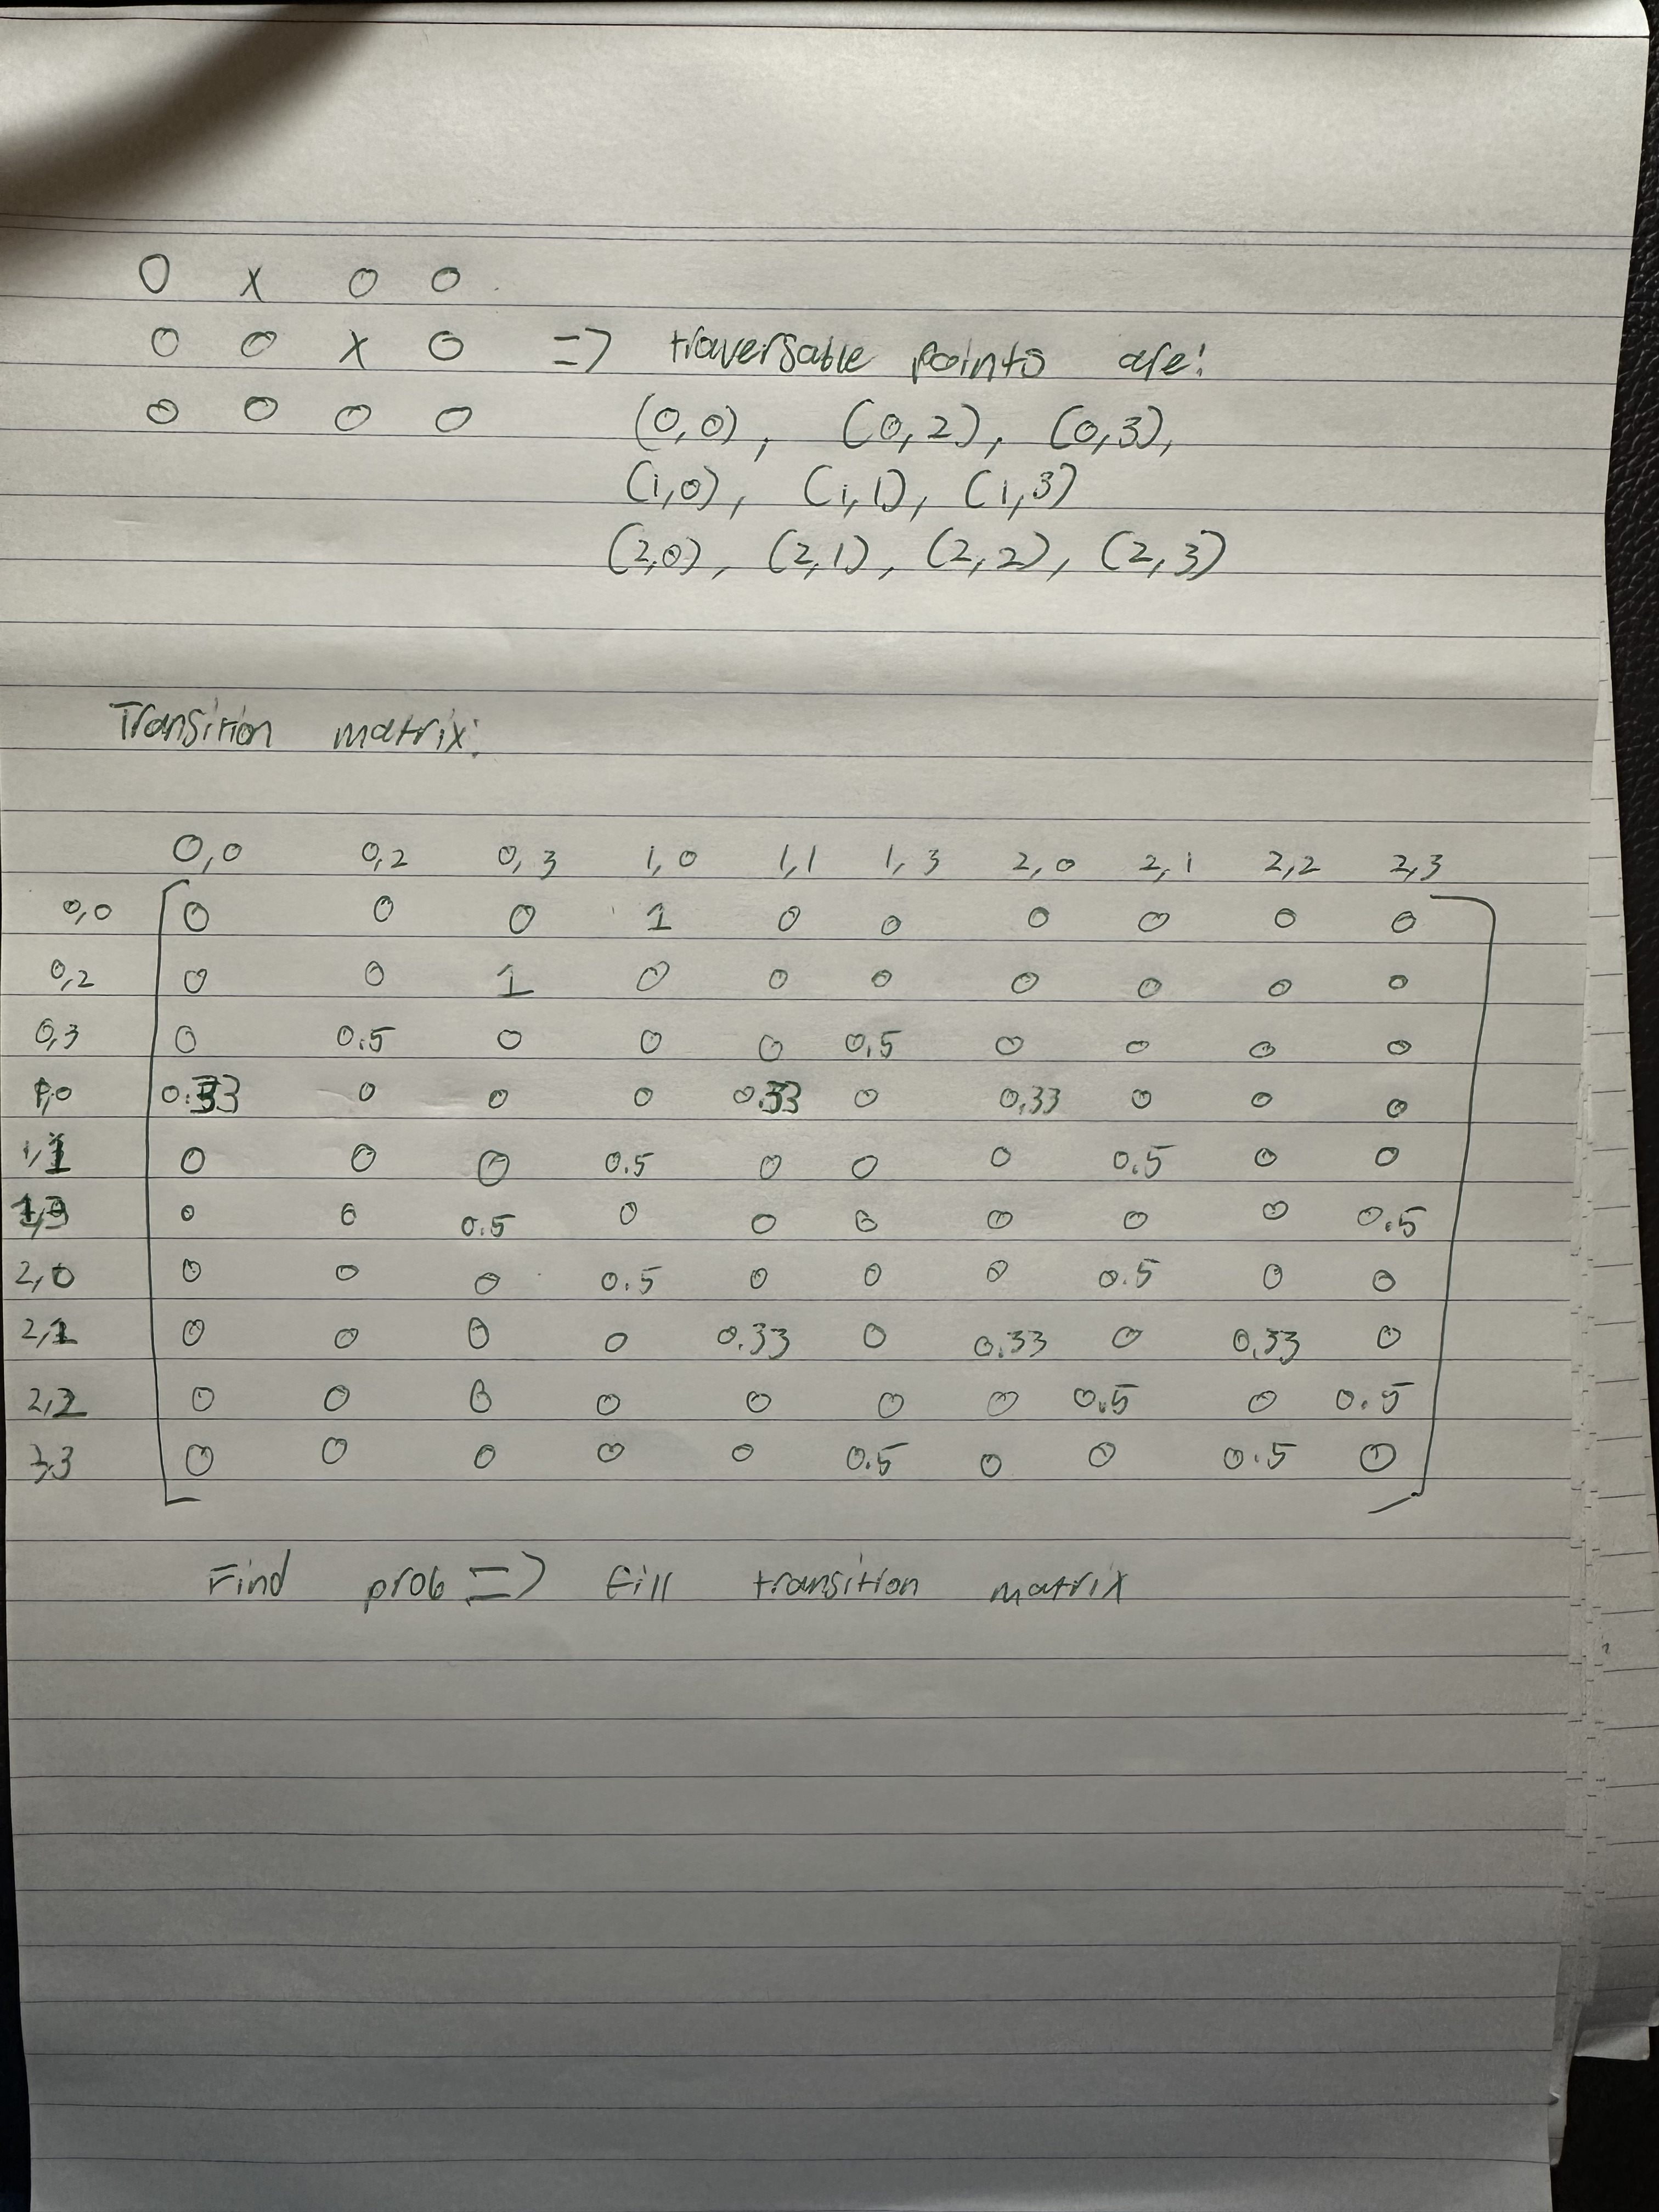 O x O O
O O x O => traversable points are:
O O O O (0,0), (0,2), (0,3),
(1,0), (1,1), (1,3)
(2,0), (2,1), (2,2), (2,3)
Transition matrix:
0,0 0,2 0,3 1,0 1,1 1,3 2,0 2,1 2,2 2,3
0,0 0 0 0 1 0 0 0 0 0 0
0,2 0 0 1 0 0 0 0 0 0 0
0,3 0 0.5 0 0 0 0.5 0 0 0 0
1,0 0.33 0 0 0 0.33 0 0.33 0 0 0
1,1 0 0 0 0.5 0 0 0 0.5 0 0
1,3 0 0 0.5 0 0 0 0 0 0 0.5
2,0 0 0 0 0.5 0 0 0 0.5 0 0
2,1 0 0 0 0 0.33 0 0.33 0 0.33 0
2,2 0 0 0 0 0 0 0 0.5 0 0.5
3,3 0 0 0 0 0 0.5 0 0 0.5 0
Find prob => fill transition matrix